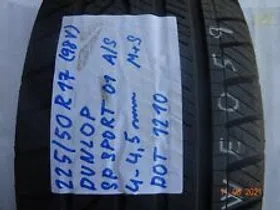 225/50 R17 (98Y)
DUNLOP
SP SPORT 01 A/S
4-4,5mm M+S
DOT 1210
VE059